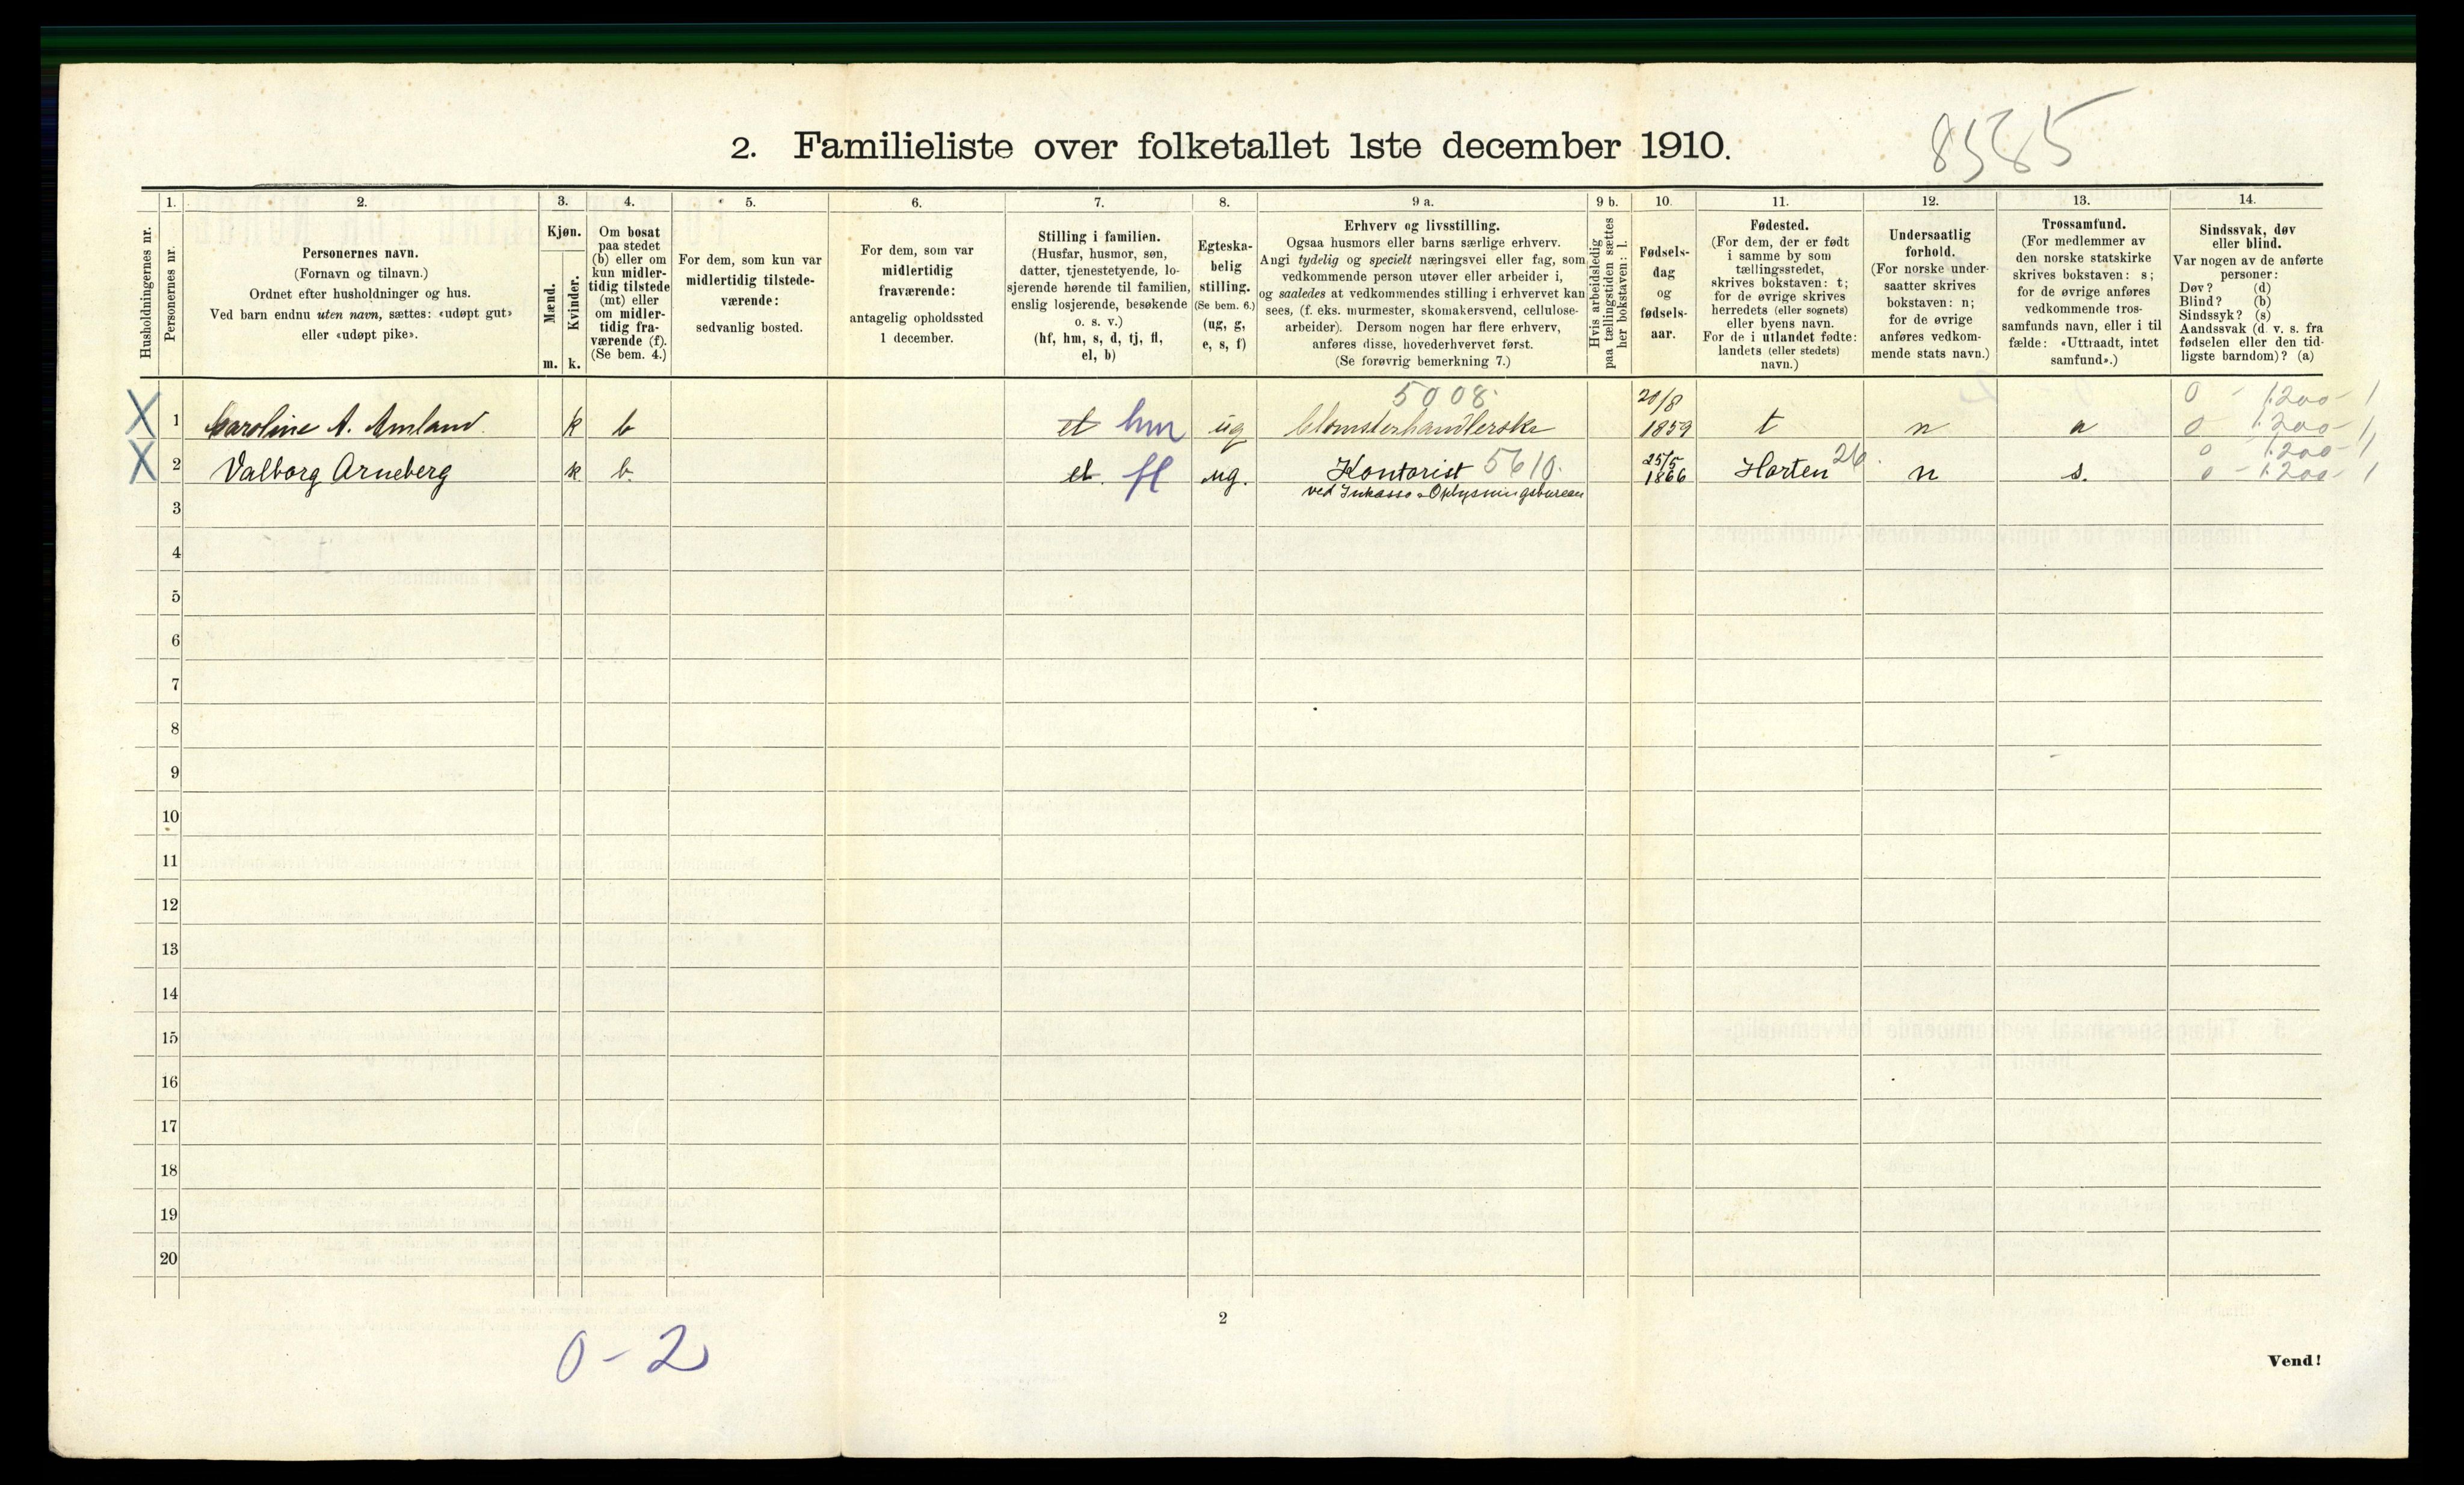 8585
2. Familieliste over folketallet 1ste december 1910.
1. 2. 3. 4. 5. 6. 7. 8. 9 a. 9 b. 10. 11. 12. 13. 14.
Husholdningernes nr.
Personernes nr.
Personernes navn.
(Fornavn og tilnavn.)
Ordnet efter husholdninger og hus.
Ved barn endnu uten navn, sættes: «udøpt gut»
eller «udøpt pike».
Kjøn.
Mænd.
Kvinder.
m. k.
Om bosat
paa stedet
(b) eller om
kun midler-
tidig tilstede
(mt) eller
om midler-
tidig fra-
værende (f).
(Se bem. 4.)
For dem, som kun var
midlertidig tilstede-
værende:
sedvanlig bosted.
For dem, som var
midlertidig
fraværende:
antagelig opholdssted
1 december.
Stilling i familien.
(Husfar, husmor, søn,
datter, tjenestetyende, lo-
sjerende hørende til familien,
enslig losjerende, besøkende
o. s. v.)
(hf, hm, s, d, tj, fl,
el, b)
Egteska-
belig
stilling.
(Se bem. 6.)
(ug, g,
e, s, f)
Erhverv og livsstilling.
Ogsaa husmors eller barns særlige erhverv.
Angi tydelig og specielt næringsvei eller fag, som
vedkommende person utøver eller arbeider i,
og saaledes at vedkommendes stilling i erhvervet kan
sees, (f. eks. murmester, skomakersvend, cellulose-
arbeider). Dersom nogen har flere erhverv,
anføres disse, hovederhvervet først.
(Se forøvrig bemerkning 7.)
Hvis arbeidsledig
paa tællingstiden sættes
her bokstaven: l.
Fødsels-
dag
og
fødsels-
aar.
Fødested.
(For dem, der er født
i samme by som
tællingsstedet,
skrives bokstaven: t;
for de øvrige skrives
herredets (eller sognets)
eller byens navn.
For de i utlandet fødte:
landets (eller stedets)
navn.)
Undersaatlig
forhold.
(For norske under-
saatter skrives
bokstaven: n;
for de øvrige
anføres vedkom-
mende stats navn.)
Trossamfund.
(For medlemmer av
den norske statskirke
skrives bokstaven: s;
for de øvrige anføres
vedkommende tros-
samfunds navn, eller i til
fælde: «Uttraadt, intet
samfund».)
Sindssvak, døv
eller blind.
Var nogen av de anførte
personer:
Døv? (d)
Blind? (b)
Sindssyk? (s)
Aandssvak (d. v. s. fra
fødselen eller den tid-
ligste barndom)? (a)
5008. 20/8 0 - 1200 - 1
X 1 Caroline A. Amland k b el hm ug Blomsterhandlerske 1859 t n 0 1200 - 1
25/5 0 1200 - 1
X 2 Valborg Arneberg k b. el. fl ug. Kontorist 5610. 1866 Horten 26. n s. 0 - 1200 - 1
ved Inkasso & Oplysningsbureau
3
4
5
6
7
8
9
10
11
12
13
14
15
16
17
18
19
20
2
0 - 2
Vend!